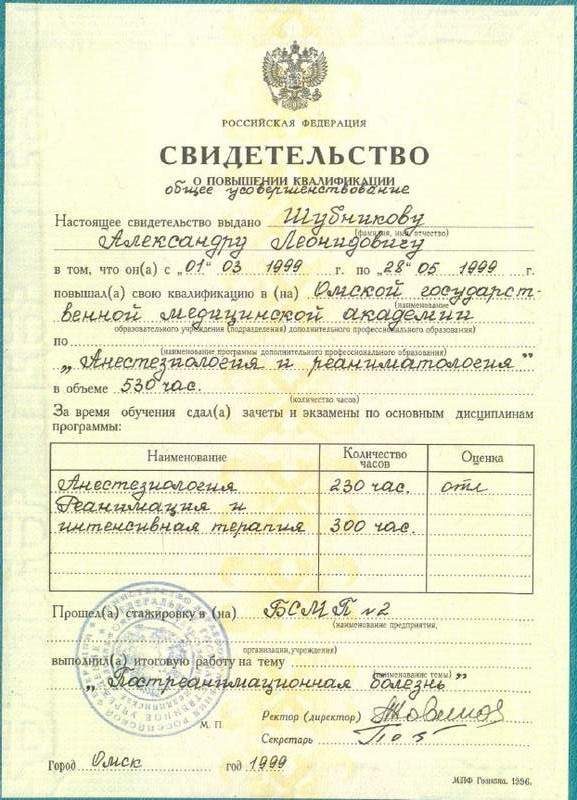 РОССИЙСКАЯ ФЕДЕРАЦИЯ
СВИДЕТЕЛЬСТВО
О ПОВЫШЕНИИ КВАЛИФИКАЦИИ
общее усовершенствование
Настоящее свидетельство выдано Шубникову
(фамилия, имя, отчество)
Александру Леонидовичу
в том, что он(а) с „01" 03 1999 г. по „28" 05 1999 г.
повышал(а) свою квалификацию в (на) Омской государст-
(наименование
венной медицинской академии
образовательного учреждения (подразделения) дополнительного профессионального образования)
по
(наименование программы дополнительного профессионального образования)
„Анестезиология и реаниматология"
в объеме 530 час.
(количество часов)
За время обучения сдал(а) зачеты и экзамены по основным дисциплинам
программы:
Наименование Количество часов Оценка
Анестезиология 230 час. отл
Реанимация и
интенсивная терапия 300 час.
Прошел(а) стажировку в (на) БСМП №2
(наименование предприятия,
организации, учреждения)
выполнил(а) итоговую работу на тему
(наименование темы)
„Постреанимационная болезнь"
Ректор (директор)
М. П.
Секретарь
Город Омск год 1999
МПФ Гознака. 1996.